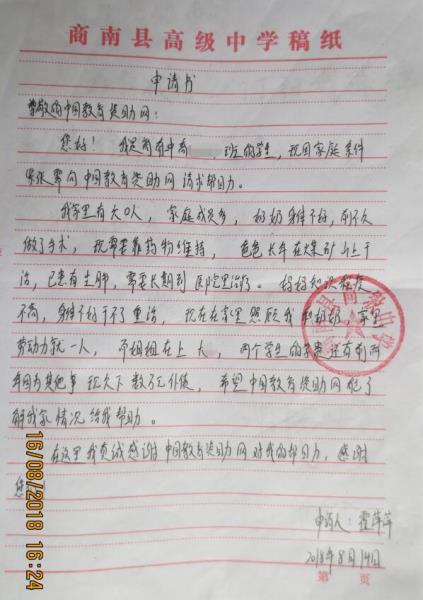 商南县高级中学稿纸
申请书
尊敬的中国教育资助网：
您好！我是商南中高 班的学生，现因家庭条件
紧张需向中国教育资助网请求帮助。
我家里有六口人，家庭成员多，奶奶身体不好，前不久
做了手术，现需要靠药物维持，爸爸长年在煤矿山上干
活，已患有尘肺，需要长期到医院里治疗。妈妈知识程度
不高，身体不好干不了重活，现在在家里照顾我和奶奶，家里
劳动力就一人，而姐姐在上大，两个学生的学费还有前两
年因为其他事 欠下数万外债，希望中国教育资助网能了
解我家情况给我帮助。
在这里我真诚感谢中国教育资助网对我的帮助，感谢
您
申请人：霍萍萍
2018年8月14日
第 页
16/08/2018 16:24